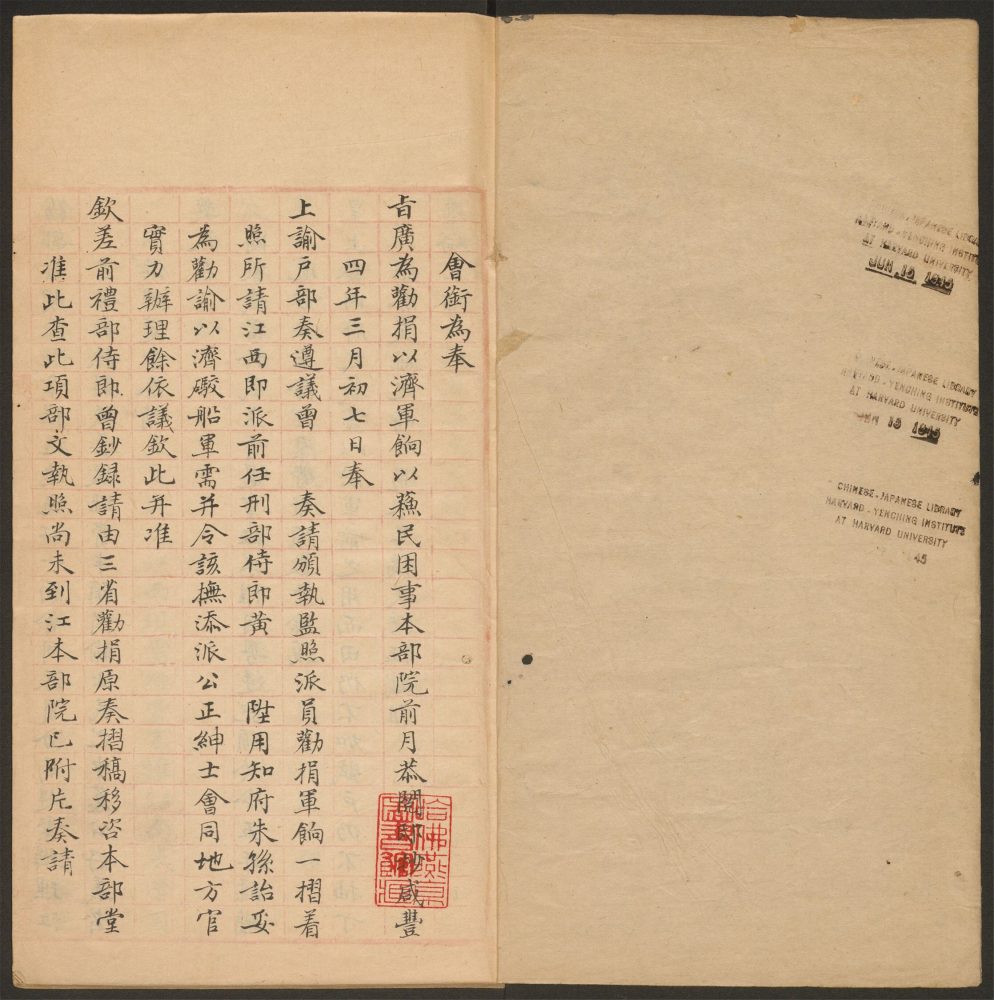 會銜為奉
旨廣為勸捐以濟軍餉以蘓民困事本部院前月恭閱邸抄咸豐
上四年三月初七日奉
上諭戶部奏遵議曾 奏請頒執監照派員勸捐軍餉一摺着
照所請江西即派前任刑部侍郎黃 陞用知府朱孫詒妥
為勸諭以濟礮船軍需并令該撫添派公正紳士會同地方官
實力辦理餘依議欽此并准
欽差前禮部侍郎曾鈔録請由三省勸捐原奏摺稿移咨本部堂
准此查此項部文執照尚未到江本部院已附片奏請
哈佛燕京
圖書館藏
JUN 12 1945
CHINESE-JAPANESE LIBRARY
HARVARD-YENCHING INSTITUTE
AT HARVARD UNIVERSITY
JUN 13 1945
CHINESE-JAPANESE LIBRARY
HARVARD-YENCHING INSTITUTE
AT HARVARD UNIVERSITY
45